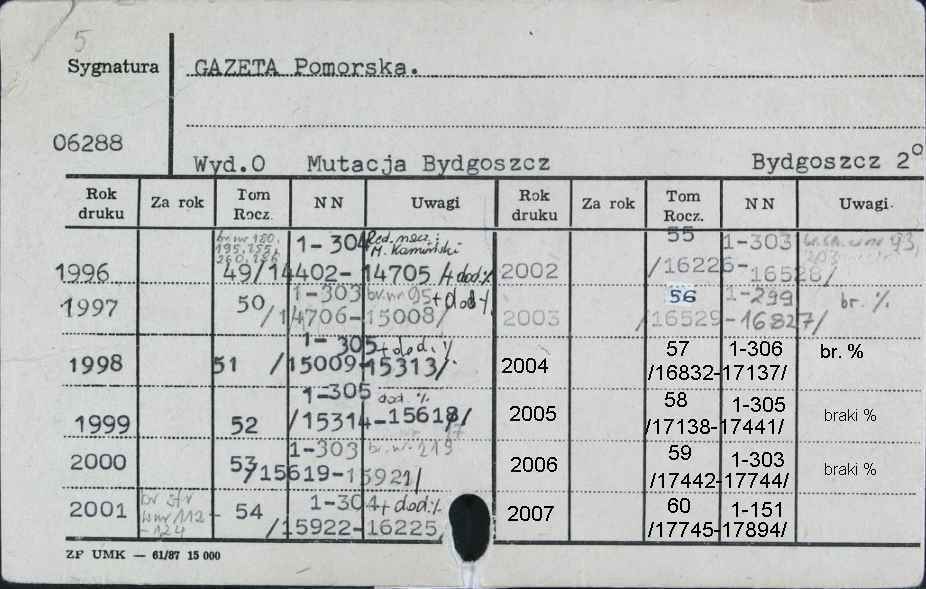 5
Sygnatura GAZETA Pomorska.
06288
Wyd.O Mutacja Bydgoszcz Bydgoszcz 2°
Rok druku Za rok Tom Rocz. NN Uwagi Rok druku Za rok Tom Rocz. NN Uwagi
br. nr 180, 1-304 Red. nacz. i 55 1-303 93,
195, 255, M. Kamiński
1996 49/14402-14705/+dod.% 2002 /16226-16528/
1-303 br. nr 95+dod% 56 1-299 br. %
1997 50/14706-15008/ 2003 /16529-16827/
1-305+dod.% 57 1-306 br. %
1998 51 /15009-15313/ 2004 /16832-17137/
1-305 dod. % 58 1-305
1999 52 /15314-15618/ 2005 /17138-17441/ braki %
1-303 br. nr 219 59 1-303
2000 53/15619-15921/ 2006 /17442-17744/ braki %
br str 1-304+dod.% 60 1-151
2001 w nr 112 54 /15922-16225 2007 /17745-17894/
-124
ZP UMK — 61/87 15 000